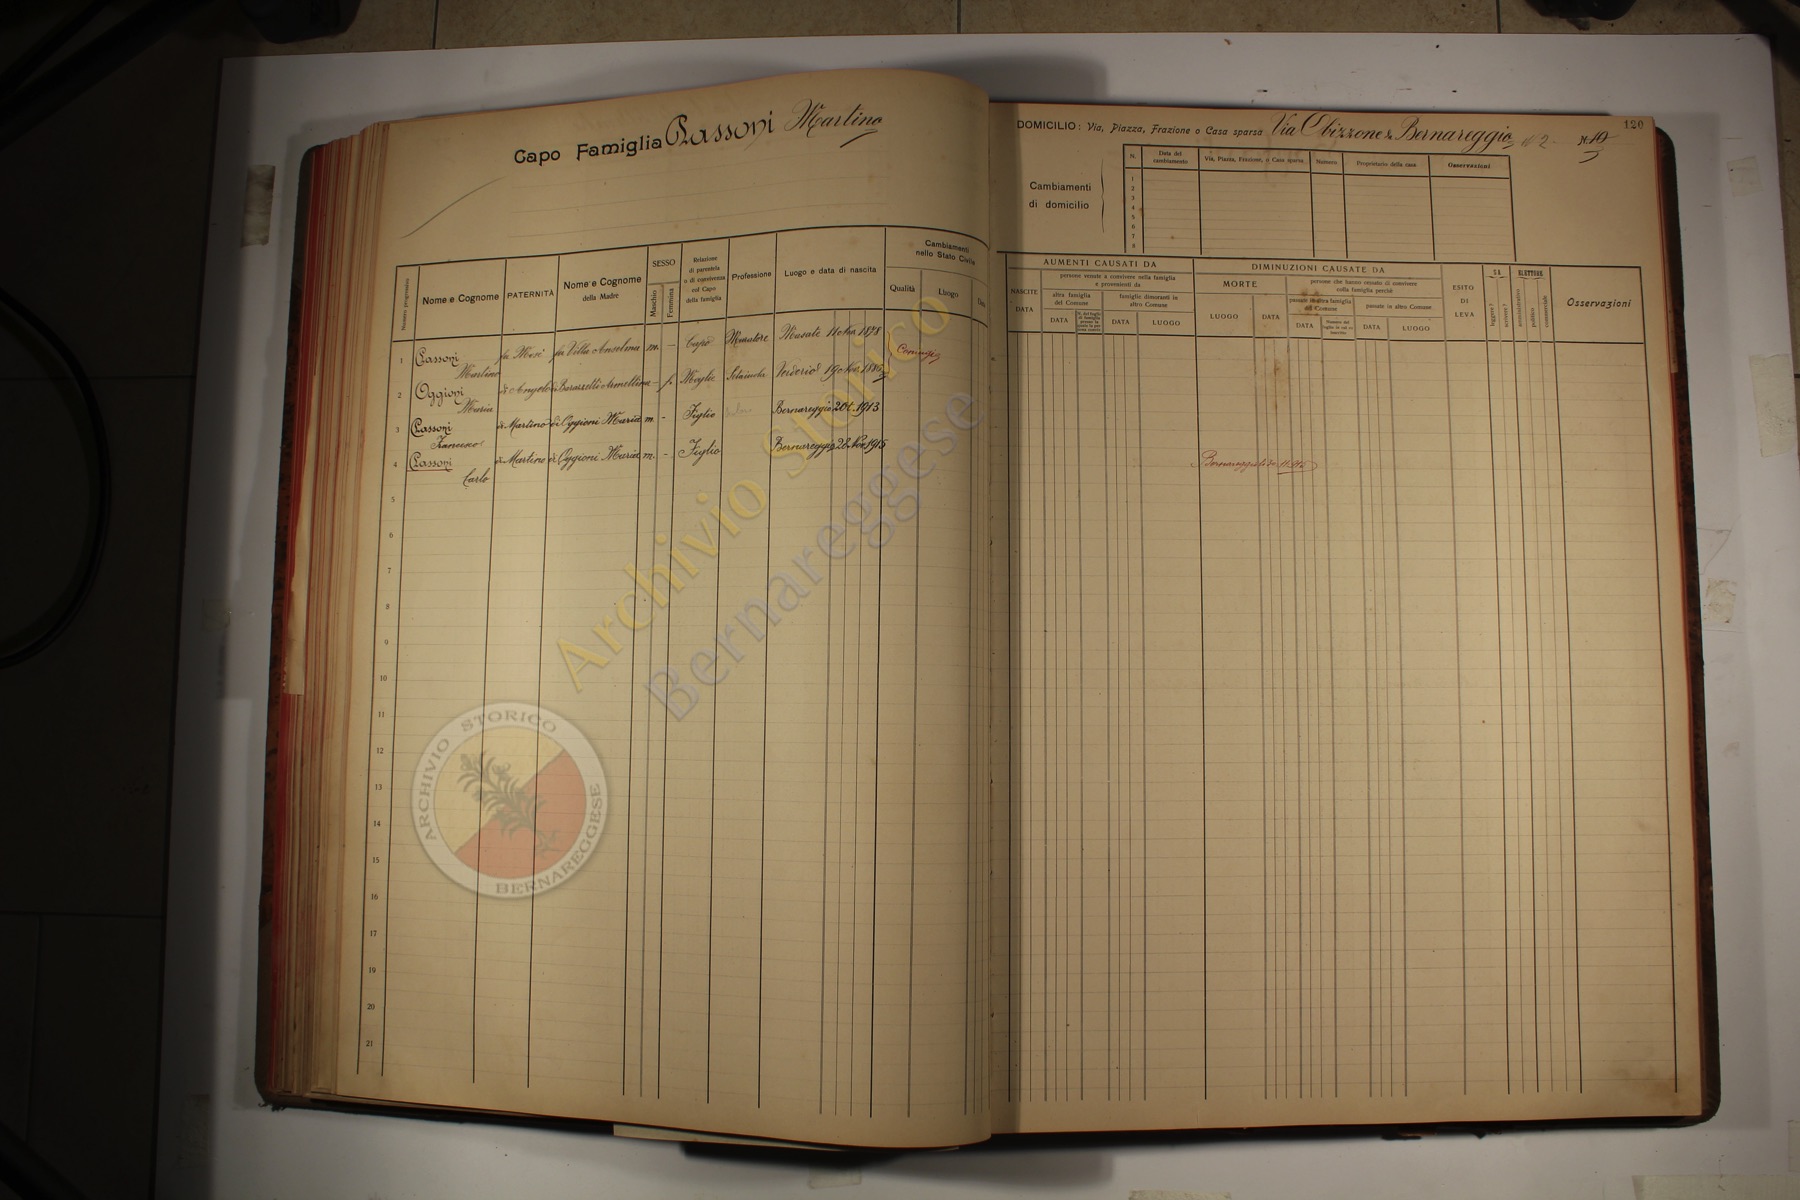 Capo Famiglia Passoni Martino
Numero progressivo
Nome e Cognome
PATERNITÀ
Nome e Cognome
della Madre
SESSO
Maschio
Femmina
Relazione
di parentela
o di convivenza
col Capo
della famiglia
Professione
Luogo e data di nascita
Cambiamenti
nello Stato Civile
Qualità
Luogo
Data
1 Passoni Martino fu Mosè fu Villa Anselma m. - Capo Muratore Usmate 11 Nov. 1878 Coniugi
2 Oggioni Maria di Angelo - f. Moglie Verderio 19 Nov.
3 Passoni Francesco di Martino di Oggioni Maria m. - Figlio Bernareggio 1913
4 Passoni Carlo di Martino di Oggioni Maria m. - Figlio Bernareggio 28 Nov 1915
5
6
7
8
9
10
11
12
13
14
15
16
17
18
19
20
21
DOMICILIO: Via, Piazza, Frazione o Casa sparsa Via Obizzone da Bernareggio N 2 N. 10
120
Cambiamenti
di domicilio
N.
Data del
cambiamento
Via, Piazza, Frazione, o Casa sparsa
Numero
Proprietario della casa
Osservazioni
1
2
3
4
5
6
7
8
AUMENTI CAUSATI DA
NASCITE
DATA
persone venute a convivere nella famiglia
e provenienti da
altra famiglia
del Comune
DATA
famiglie dimoranti in
altro Comune
DATA
LUOGO
DIMINUZIONI CAUSATE DA
MORTE
LUOGO
DATA
persone che hanno cessato di convivere
colla famiglia perchè
passate in altra famiglia
del Comune
DATA
passate in altro Comune
DATA
LUOGO
ESITO
DI
LEVA
SA
leggere?
scrivere?
ELETTORE
amministrativo
politico
commerciale
Osservazioni
Bernareggio
Archivio Storico
Bernareggese
ARCHIVIO STORICO
BERNAREGGESE